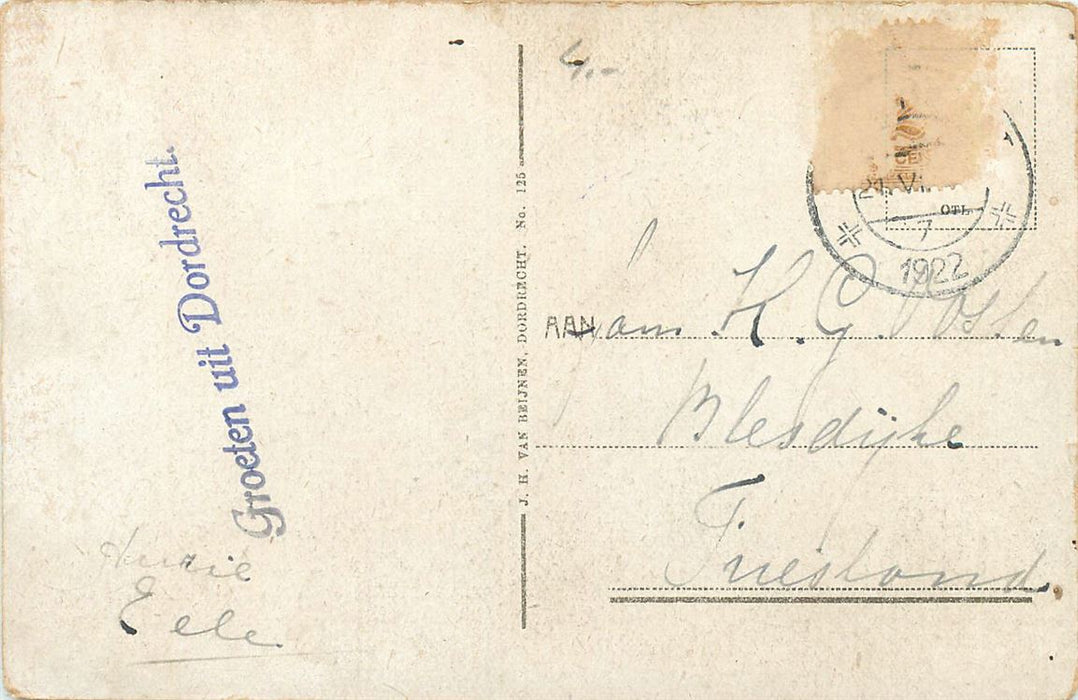 Groeten uit Dordrecht.
Eele
J. H. VAN BEIJNEN, DORDRECHT. No. 125
4.-
21. VI.
7
1922
AAN
K. G. Posten
Blesdijke
Friesland